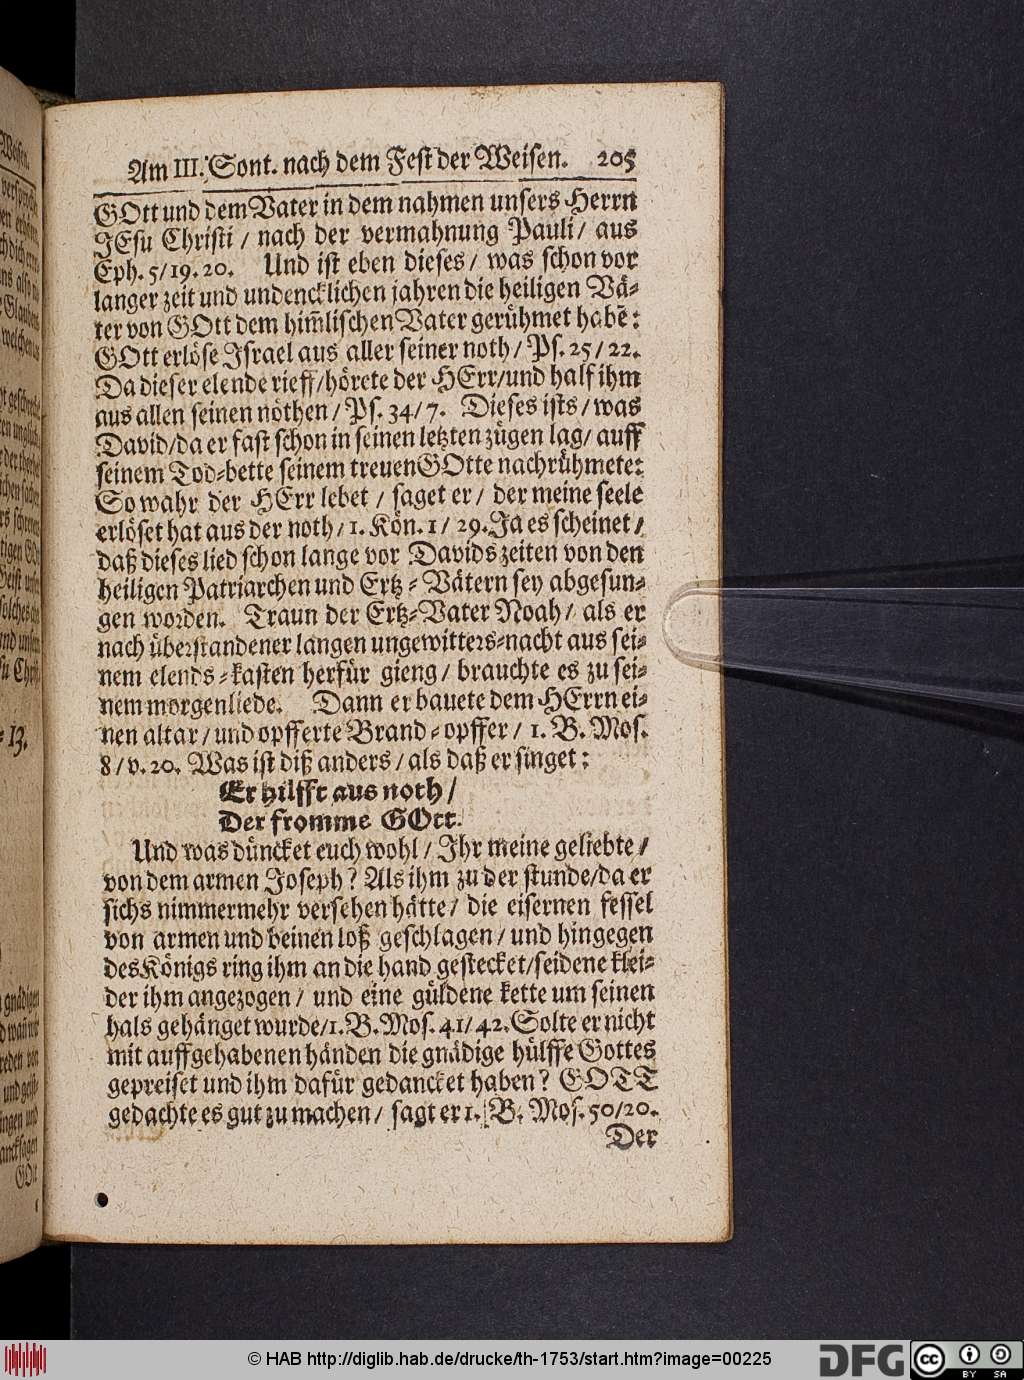 Am III. Sont. nach dem Fest der Weisen. 205
GOtt und dem Vater in dem nahmen unsers Herrn
JEsu Christi / nach der vermahnung Pauli / aus
Eph. 5/19.20. Und ist eben dieses / was schon vor
langer zeit und undencklichen jahren die heiligen Vä-
ter von GOtt dem him̃lischen Vater gerühmet habẽ:
GOtt erlöse Israel aus aller seiner noth / Ps. 25/22.
Da dieser elende rieff/hörete der HErr/und half ihm
aus allen seinen nöthen / Ps. 34/7. Dieses ists / was
David/da er fast schon in seinen letzten zügen lag/ auff
seinem Tod-bette seinem treuen GOtte nachrühmete:
So wahr der HErr lebet / saget er / der meine seele
erlöset hat aus der noth / 1. Kön. 1 / 29. Ja es scheinet /
daß dieses lied schon lange vor Davids zeiten von den
heiligen Patriarchen und Ertz-Vätern sey abgesun-
gen worden. Traun der Ertz-Vater Noah / als er
nach überstandener langen ungewitters-nacht aus sei-
nem elends-kasten herfür gieng / brauchte es zu sei-
nem morgenliede. Dann er bauete dem HErrn ei-
nen altar / und opfferte Brand-opffer / 1. B. Mos.
8/v. 20. Was ist diß anders / als daß er singet:
Er hilfft aus noth /
Der fromme GOtt.
Und was düncket euch wohl / Ihr meine geliebte /
von dem armen Joseph? Als ihm zu der stunde/da er
sichs nimmermehr versehen hätte / die eisernen fessel
von armen und beinen loß geschlagen / und hingegen
des Königs ring ihm an die hand gestecket/seidene klei-
der ihm angezogen / und eine güldene kette um seinen
hals gehänget wurde/1. B. Mos. 41/42. Solte er nicht
mit auffgehabenen händen die gnädige hülffe Gottes
gepreiset und ihm dafür gedancket haben? GOTT
gedachte es gut zu machen / sagt er 1. B. Mos. 50/20.
Der
© HAB http://diglib.hab.de/drucke/th-1753/start.htm?image=00225
DFG
cc BY SA